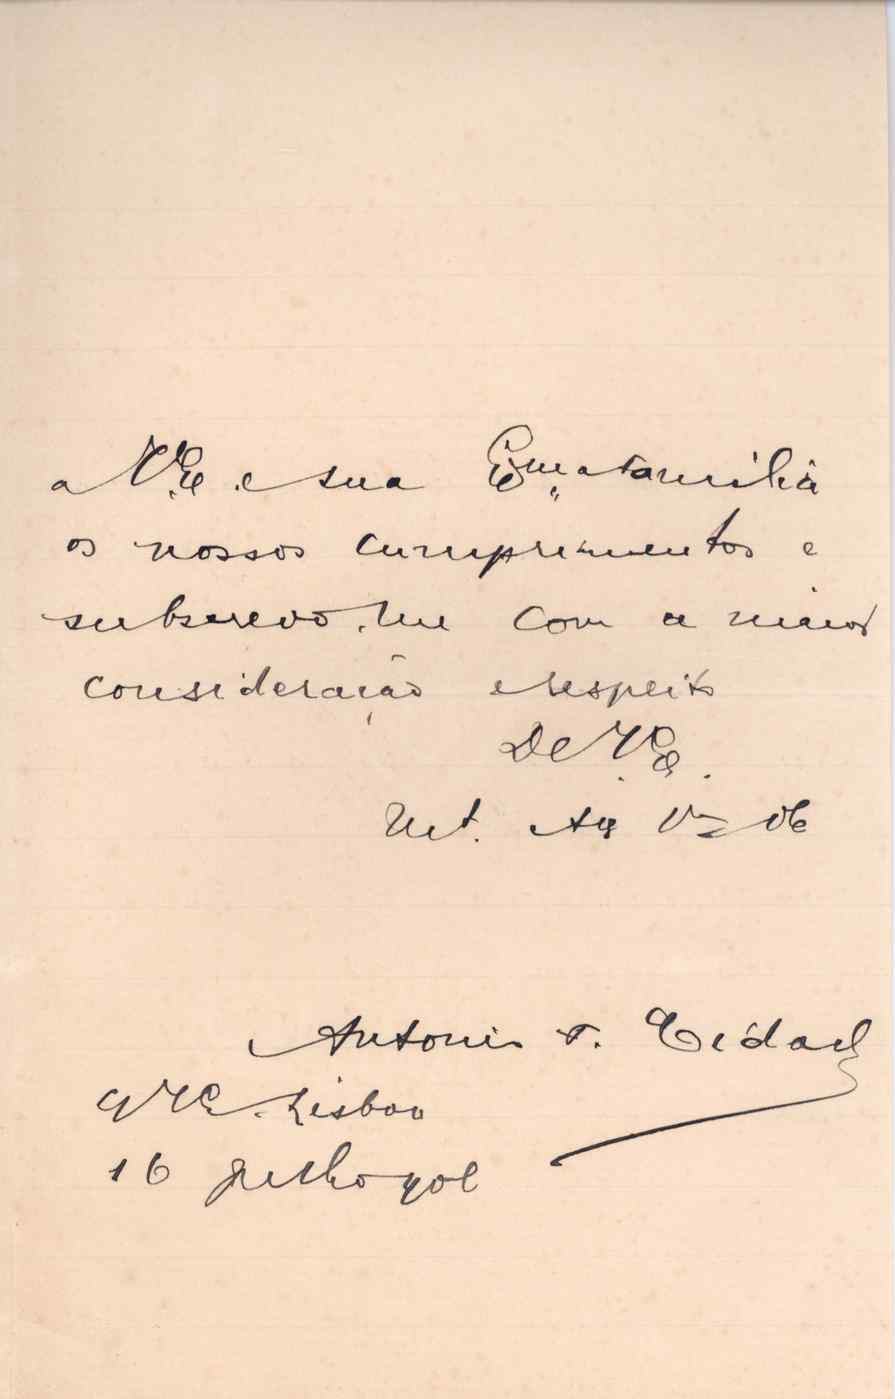 a V.E. e sua Exma familia
os nossos cumprimentos e
subscrevo-me com a maior
consideração e respeito
De V. E.
Att.
Antonio
Lisboa
16 julho 901